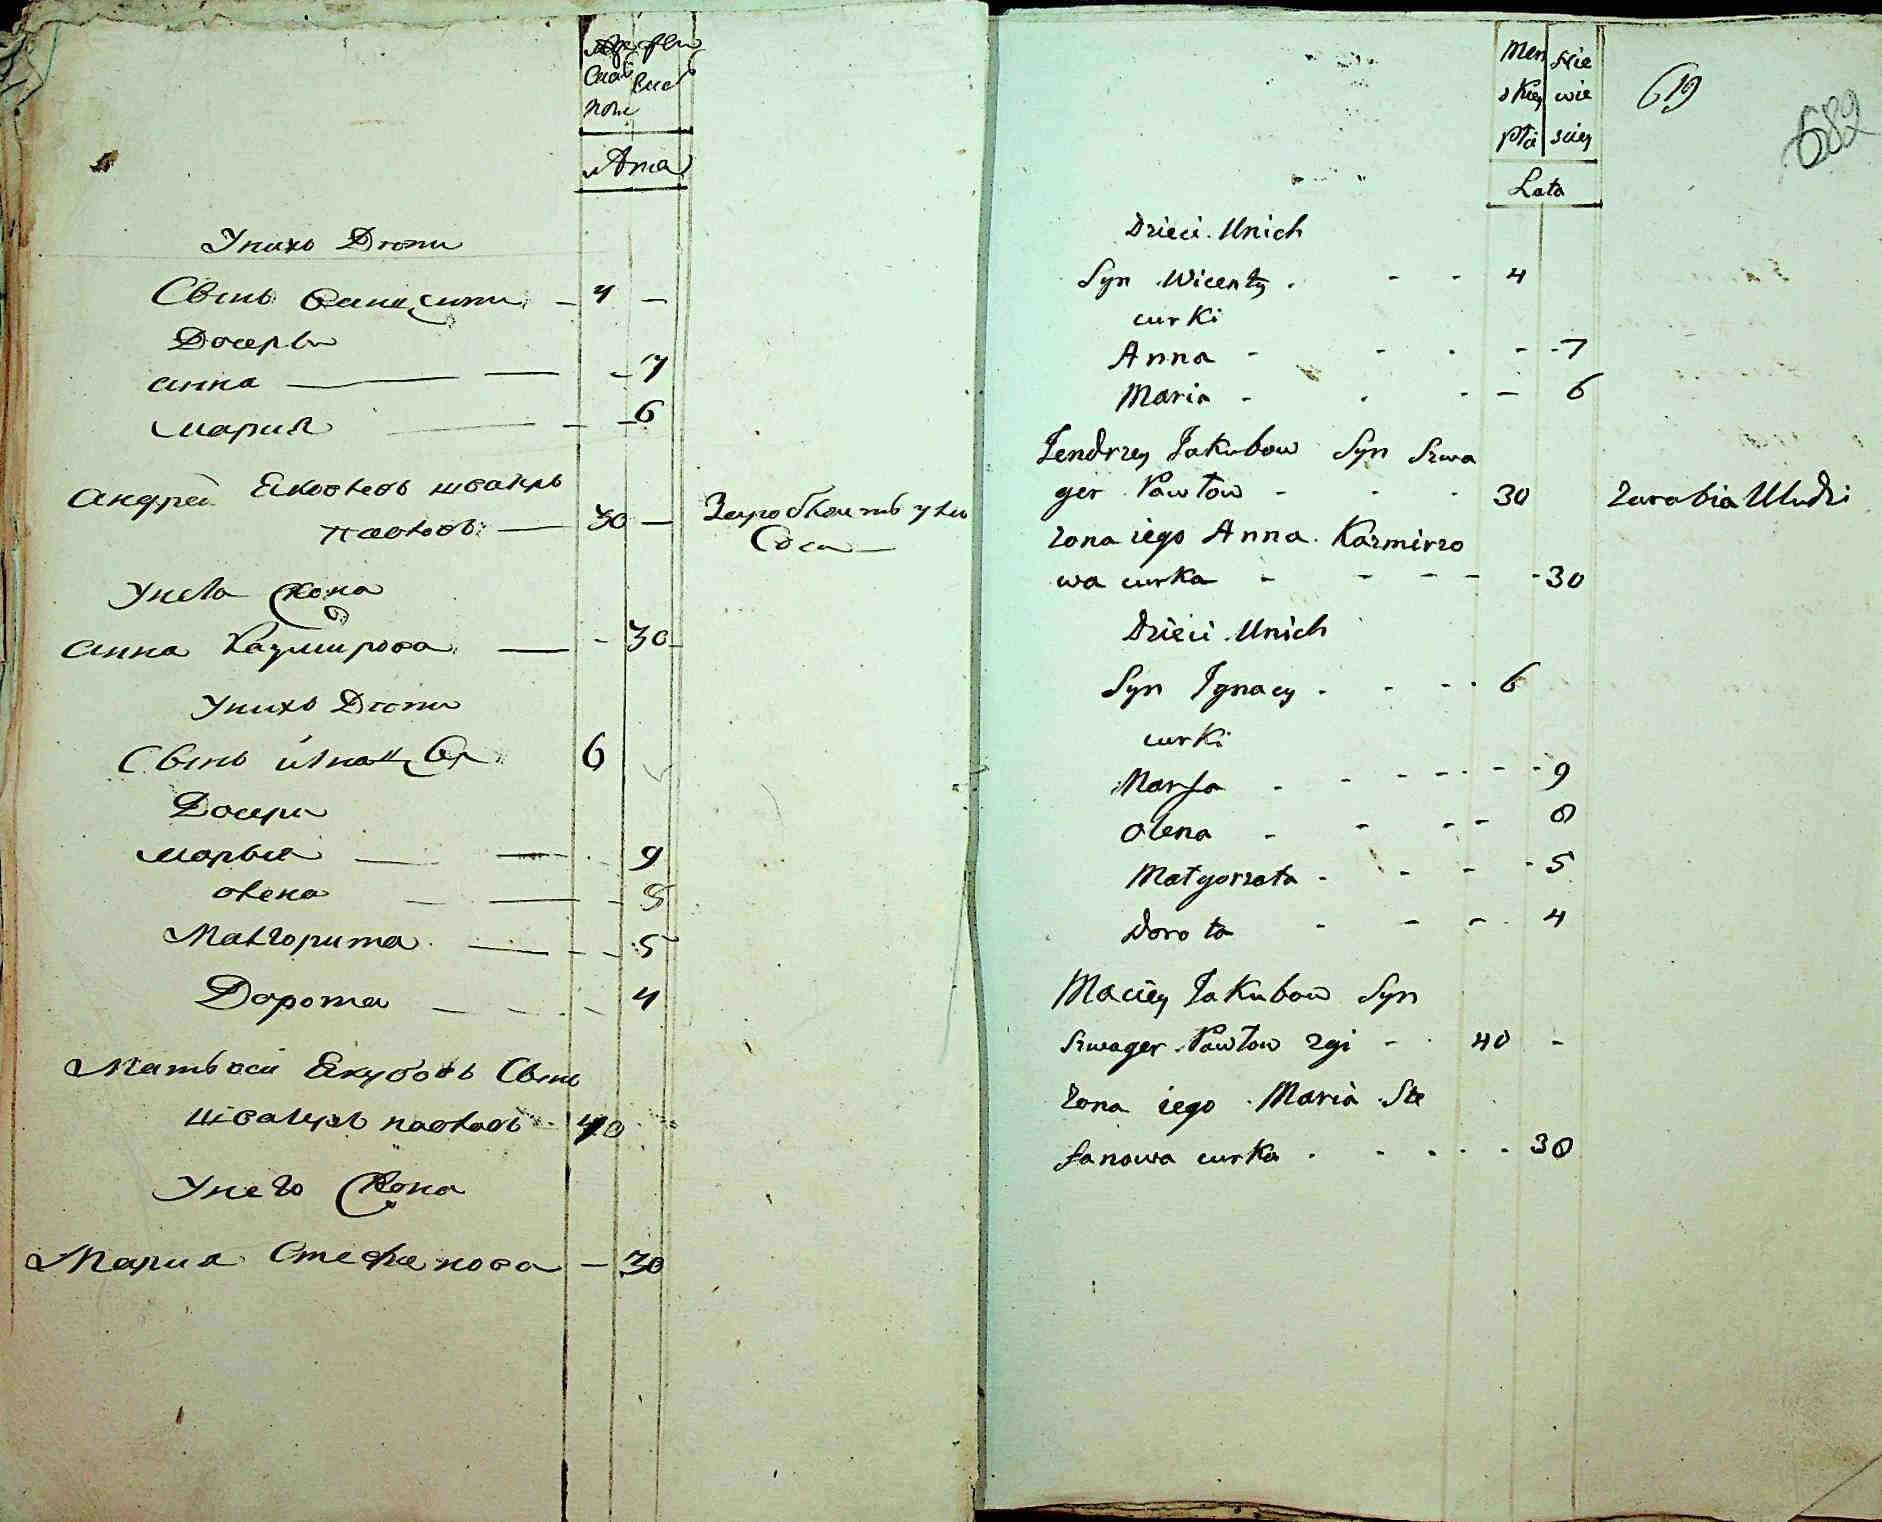 Лѣта
Унихъ Дѣти
Сынъ
Дочери
Анна — — - 7
Мария — - - 6
Андрей Якововъ швагеръ
Павловъ — 30 —
У него Жона
Анна Казимирова — - 30
Унихъ Дѣти
Сынъ Игнацы 6
Дочери
Марья — — 9
Олена — — - 8
Малгорита — - - 5
Дорота — - - 4
Матвей Якубовъ Сынъ
швагеръ Павловъ 40
У него Жона
Мария Стефанова — 30
Men Nie
skiey wie
Płci sciey
619
682
Lata
Dzieci Unich
Syn Wicenty - - 4
curki
Anna - - - - 7
Maria - - - 6
Jendrzey Jakubow Syn Szwa
ger Pawłow - - 30 Zarabia U ludzi
zona iego Anna Kazmirzo
wa curka - - - - - 30
Dzieci Unich
Syn Ignacy - - - 6
curki
Marya - - - - - - 9
Olena - - - - 8
Małgorzata - - - - 5
Dorota - - - 4
Maciey Jakubow Syn
Szwager Pawłow zyi - 40 -
Zona iego Maria Ste
fanowa curka - - - - 30